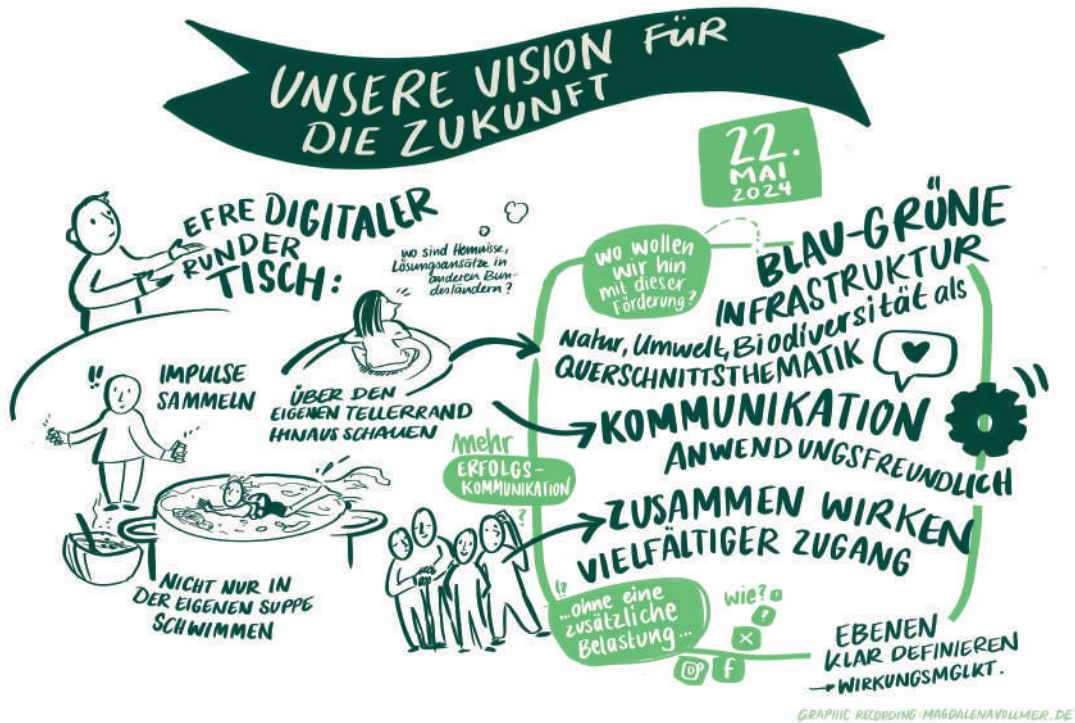 UNSERE VISION FÜR
DIE ZUKUNFT
22.
MAI
2024
EFRE DIGITALER
RUNDER
TISCH:
wo sind Hemnisse,
Lösungsansätze in
anderen Bun-
desländern?
IMPULSE
SAMMELN
ÜBER DEN
EIGENEN TELLERRAND
HINAUS SCHAUEN
NICHT NUR IN
DER EIGENEN SUPPE
SCHWIMMEN
wo wollen
wir hin
mit dieser
Förderung?
BLAU-GRÜNE
INFRASTRUKTUR
Natur, Umwelt, Biodiversität als
QUERSCHNITTSTHEMATIK
KOMMUNIKATION
ANWENDUNGSFREUNDLICH
mehr
ERFOLGS-
KOMMUNIKATION
?
ZUSAMMEN WIRKEN
VIELFÄLTIGER ZUGANG
!?
...ohne eine
zusätzliche
Belastung...
wie?
?
X
f
EBENEN
KLAR DEFINIEREN
→ WIRKUNGSMGLKT.
GRAPHIC RECORDING: MAGDALENAVOLLMER.DE